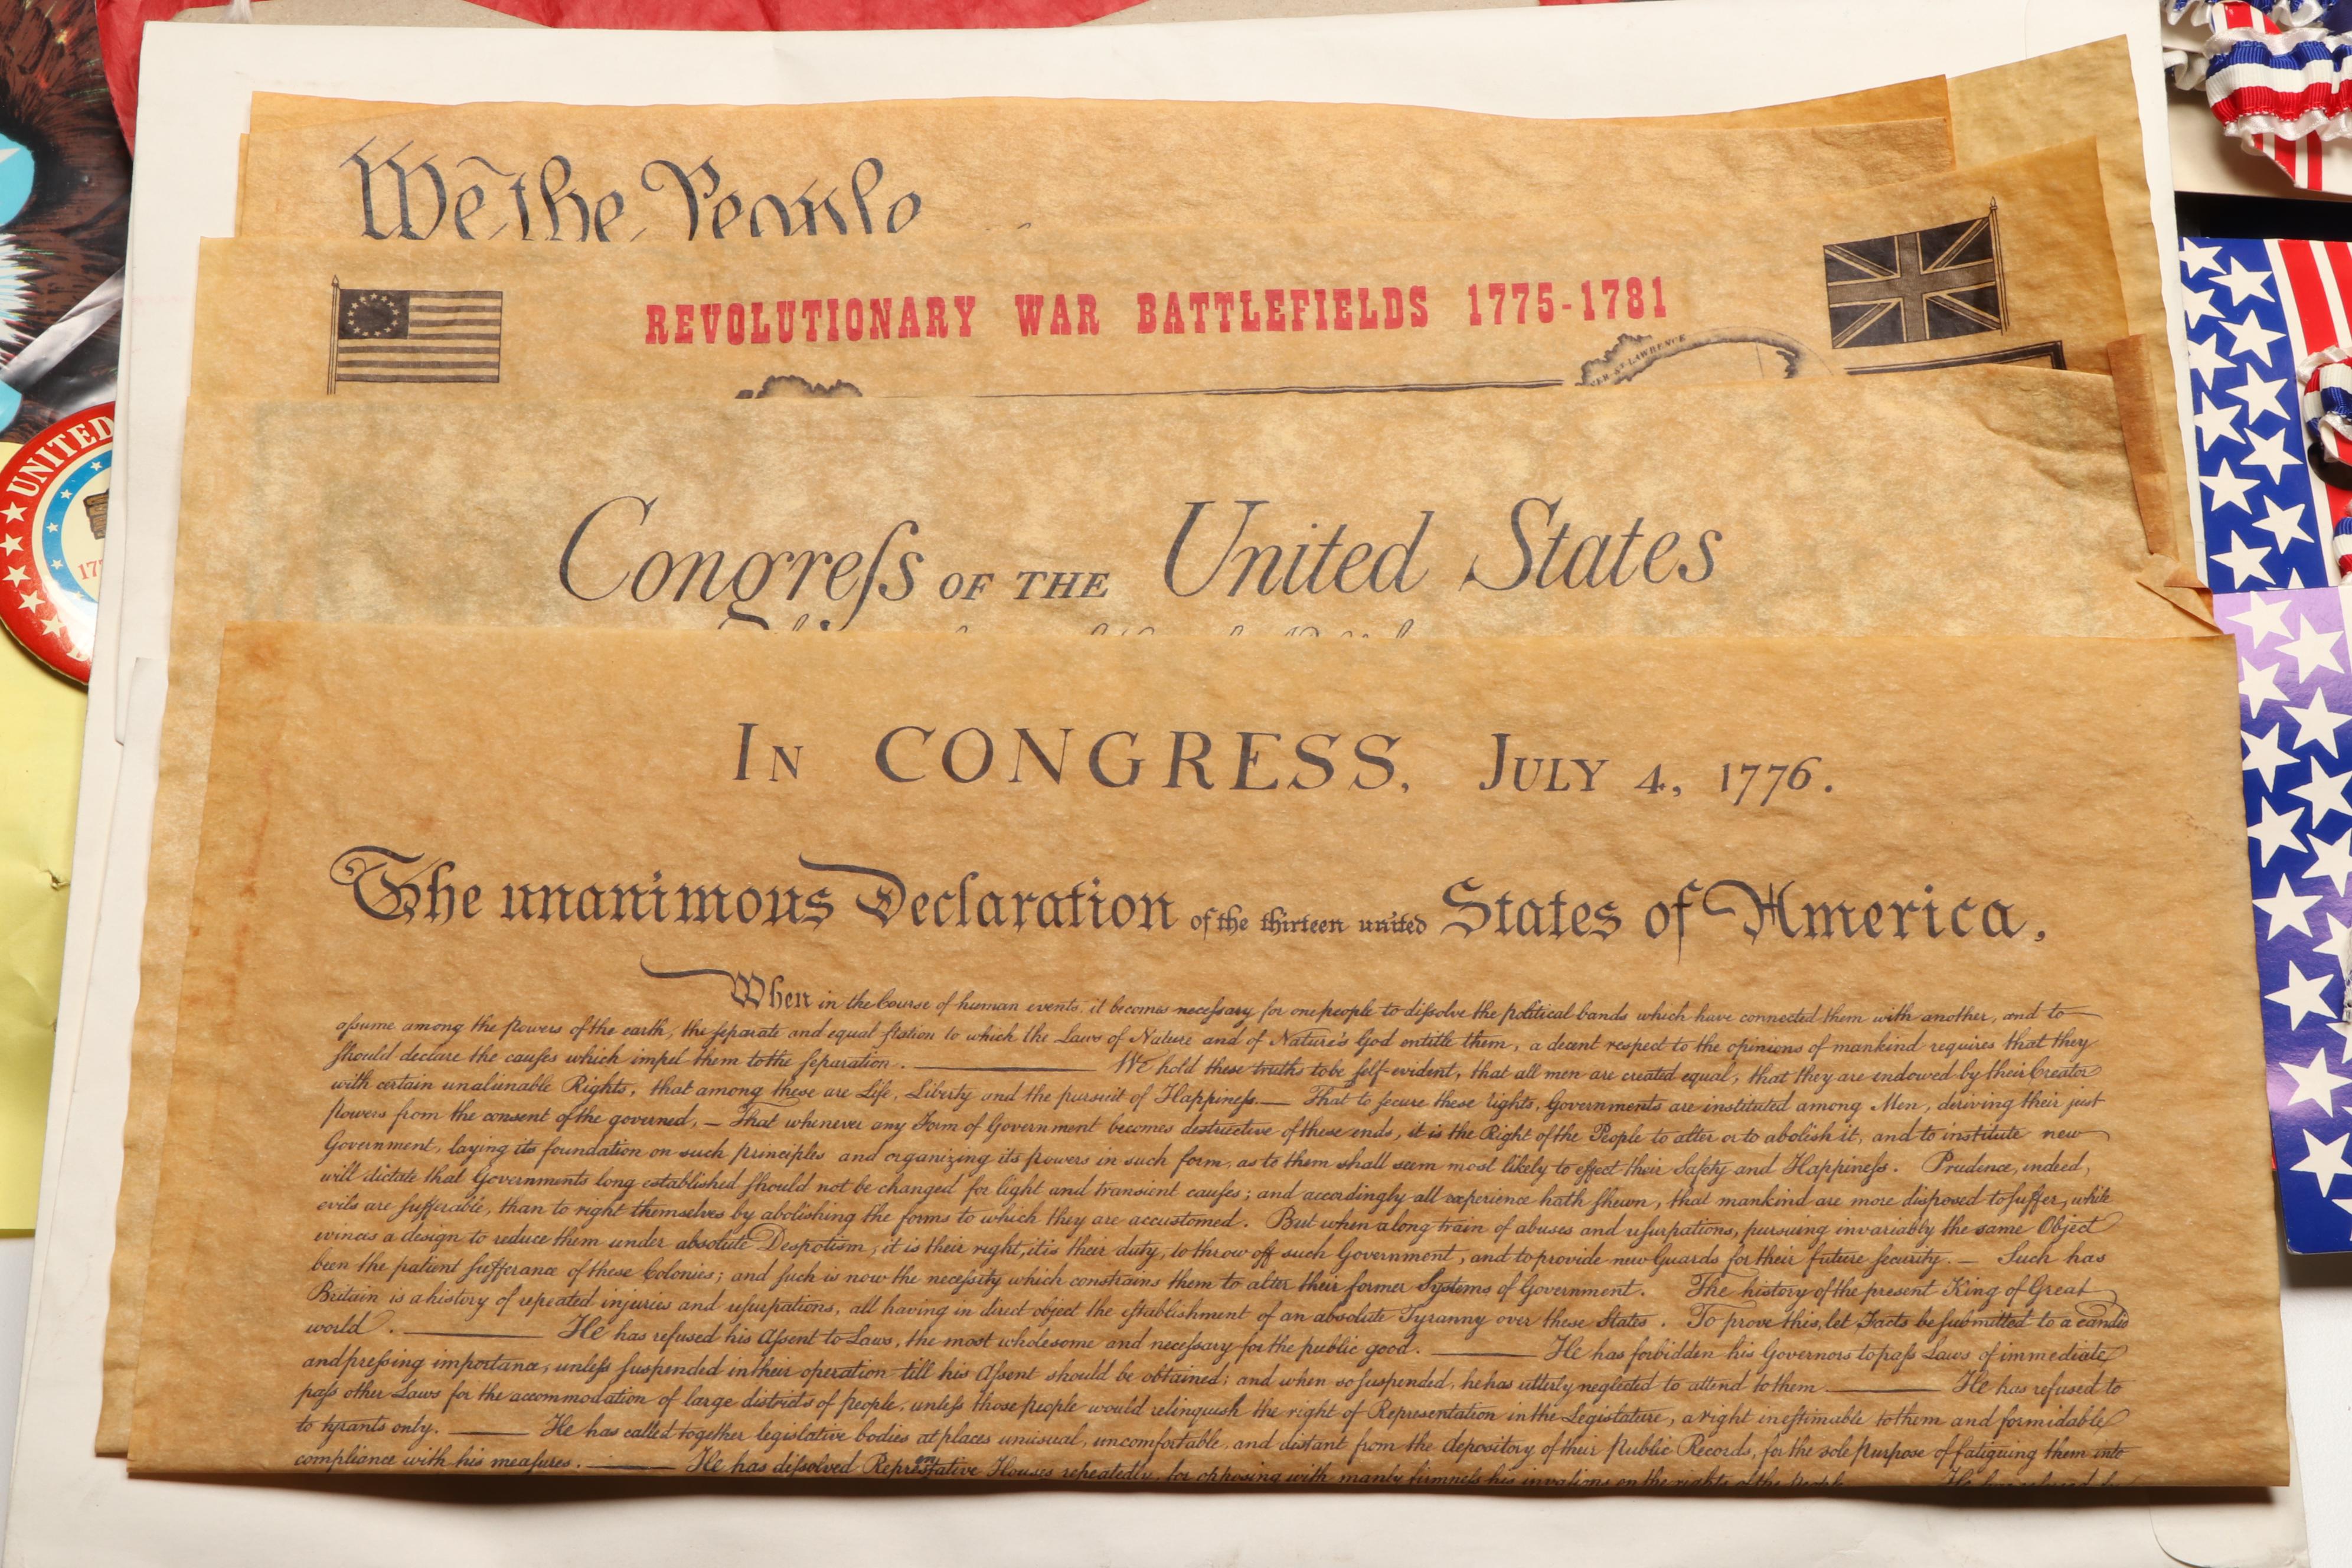 We the People
REVOLUTIONARY WAR BATTLEFIELDS 1775-1781
ST LAWRENCE
UNITED
177
Congreſs OF THE United States
IN CONGRESS, JULY 4, 1776.
The unanimous Declaration of the thirteen united States of America,
When in the Course of human events, it becomes neceſsary for one people to diſsolve the political bands which have connected them with another, and to
aſsume among the powers of the earth, the ſeparate and equal ſtation to which the Laws of Nature and of Nature's God entitle them, a decent respect to the opinions of mankind requires that they
ſhould declare the cauſes which impel them to the ſeparation. We hold these truths to be ſelf-evident, that all men are created equal, that they are endowed by their Creator
with certain unalienable Rights, that among these are Life, Liberty and the pursuit of Happineſs.— That to ſecure these rights, Governments are instituted among Men, deriving their just
powers from the consent of the governed, — That whenever any Form of Government becomes destructive of these ends, it is the Right of the People to alter or to abolish it, and to institute new
Government, laying its foundation on such principles and organizing its powers in such form, as to them shall seem most likely to effect their Safety and Happineſs. Prudence, indeed,
will dictate that Governments long established ſhould not be changed for light and transient cauſes; and accordingly all experience hath ſhewn, that mankind are more disposed to ſuffer, while
evils are ſufferable, than to right themselves by abolishing the forms to which they are accustomed. But when a long train of abuses and uſurpations, pursuing invariably the same Object
evinces a design to reduce them under absolute Despotism, it is their right, it is their duty, to throw off such Government, and to provide new Guards for their future ſecurity. — Such has
been the patient ſufferance of these Colonies; and ſuch is now the neceſsity which constrains them to alter their former Systems of Government. The history of the present King of Great
Britain is a history of repeated injuries and uſurpations, all having in direct object the eſtablishment of an absolute Tyranny over these States. To prove this, let Facts be ſubmitted to a candid
world. He has refused his Aſsent to Laws, the most wholesome and neceſsary for the public good. He has forbidden his Governors to paſs Laws of immediate
and preſsing importance, unleſs ſuspended in their operation till his Aſsent should be obtained; and when so ſuspended, he has utterly neglected to attend to them. He has refused to
paſs other Laws for the accommodation of large districts of people, unleſs those people would relinquish the right of Representation in the Legislature, a right ineſtimable to them and formidable
to tyrants only. He has called together legislative bodies at places unusual, uncomfortable, and distant from the depository of their Public Records, for the sole purpose of fatiguing them into
compliance with his meaſures. He has diſsolved Representative Houses repeatedly, for opposing with manly firmneſs his invasions on the rights of the people.